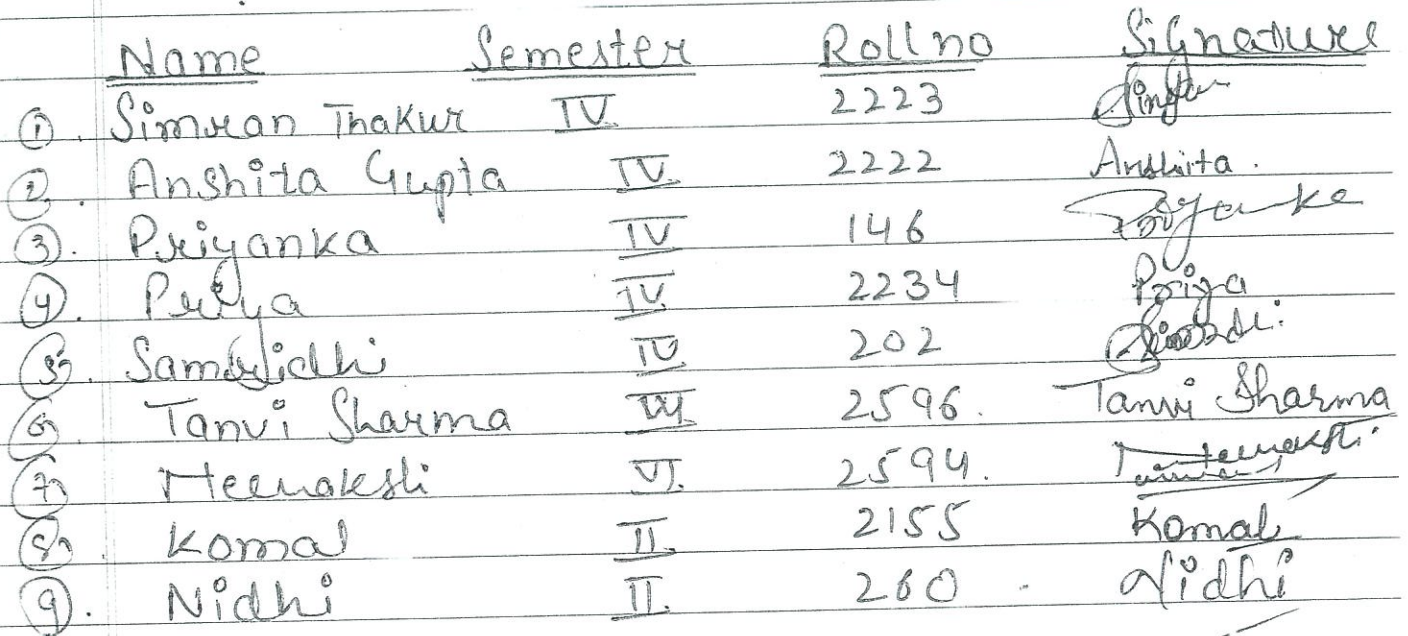 Name Semester Roll no Signature
① Simran Thakur IV 2223
② Anshita Gupta IV 2222 Anshita.
③ Priyanka IV 146 Priyanka
④ Priya IV 2234 Priya
⑤ Samridhi IV 202
⑥ Tanvi Sharma VI 2596. Tanvi Sharma
⑦ Meenakshi VI 2594. Meenakshi
⑧ Komal II 2155 Komal
⑨ Nidhi II 260 Nidhi